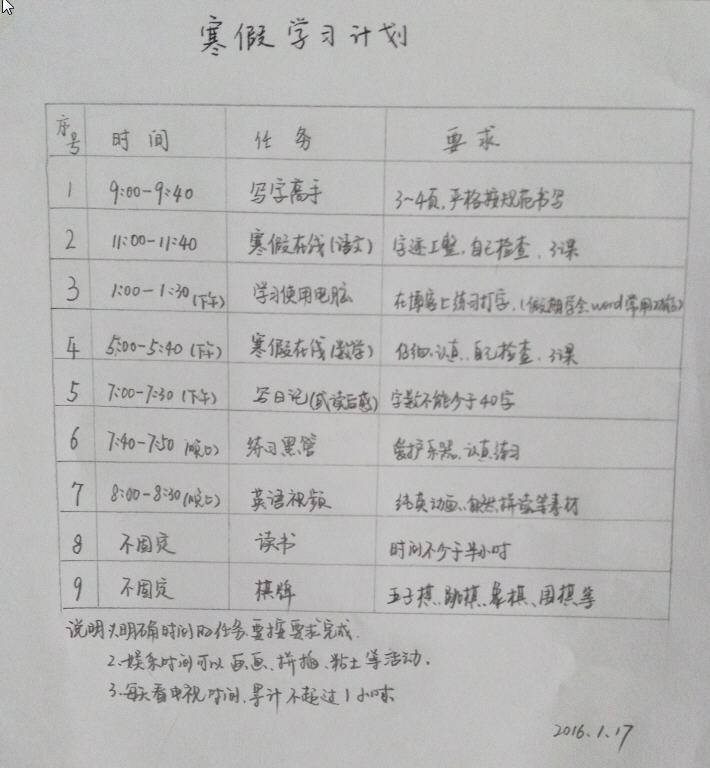 寒假学习计划
序号 时间 任务 要求
1 9:00-9:40 写字高手 3~4页,严格按规范书写
2 11:00-11:40 寒假在线(语文) 字迹工整,自己检查、3课
3 1:00-1:30(下午) 学习使用电脑 在博客上练习打字,(假期学会word常用功能)
4 5:00-5:40(下午) 寒假在线(数学) 仔细认真,自己检查、3课
5 7:00-7:30(下午) 写日记(或读后感) 字数不能少于40字
6 7:40-7:50(晚上) 练习黑管 爱护乐器,认真练习
7 8:00-8:30(晚上) 英语视频 纯英动画、自然拼读等素材
8 不固定 读书 时间不少于半小时
9 不固定 棋牌 五子棋、跳棋、象棋、围棋等
说明:1.明确时间的任务要按要求完成.
2.娱乐时间可以画画、拼插、粘土等活动.
3.每天看电视时间,累计不超过1小时
2016.1.17